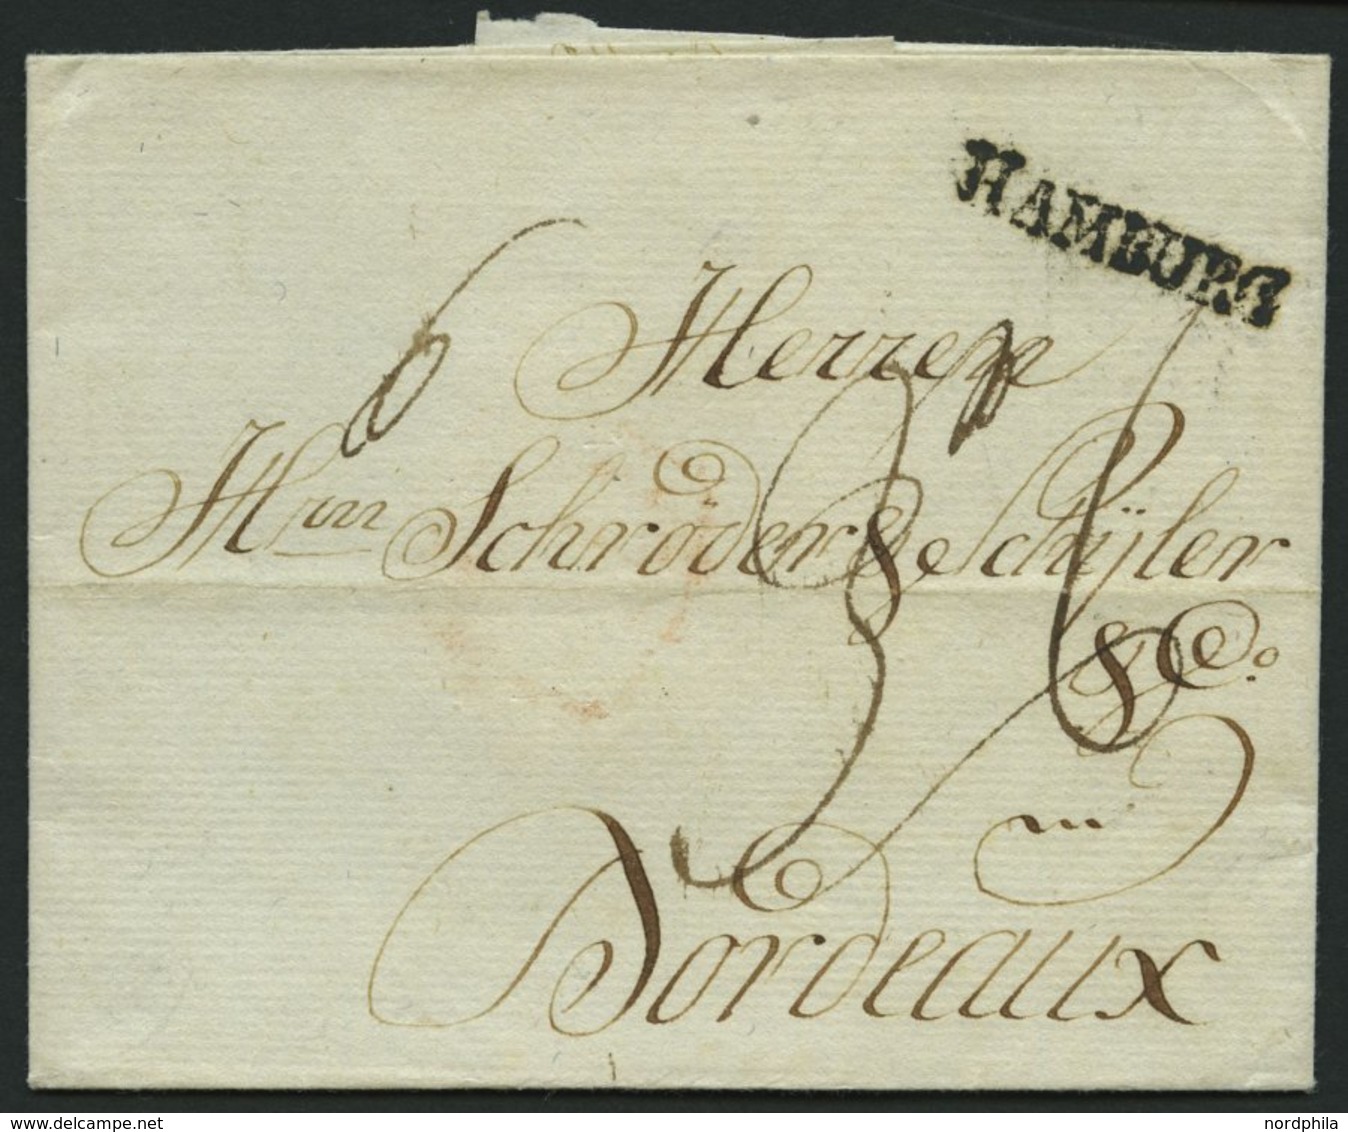 HAMBURG
6
Herren
Hrrn Schröder & Schÿler
& Co.
in
Bordeaux
www.delcampe.net
nordphila